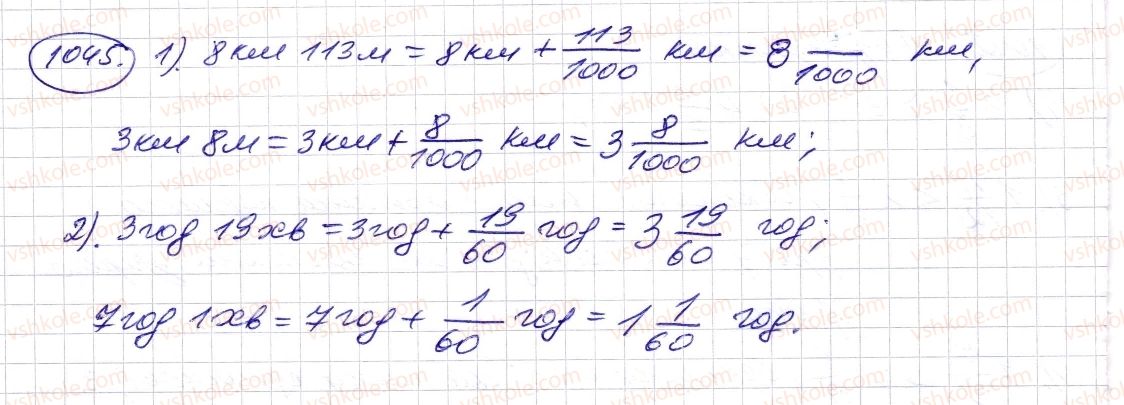 1045. 1). 8км 113м = 8км + 113/1000 км = 8 /1000 км,
3км 8м = 3км + 8/1000 км = 3 8/1000 км;
2). 3год 19хв = 3год + 19/60 год = 3 19/60 год;
7год 1хв = 7год + 1/60 год = 1 1/60 год.